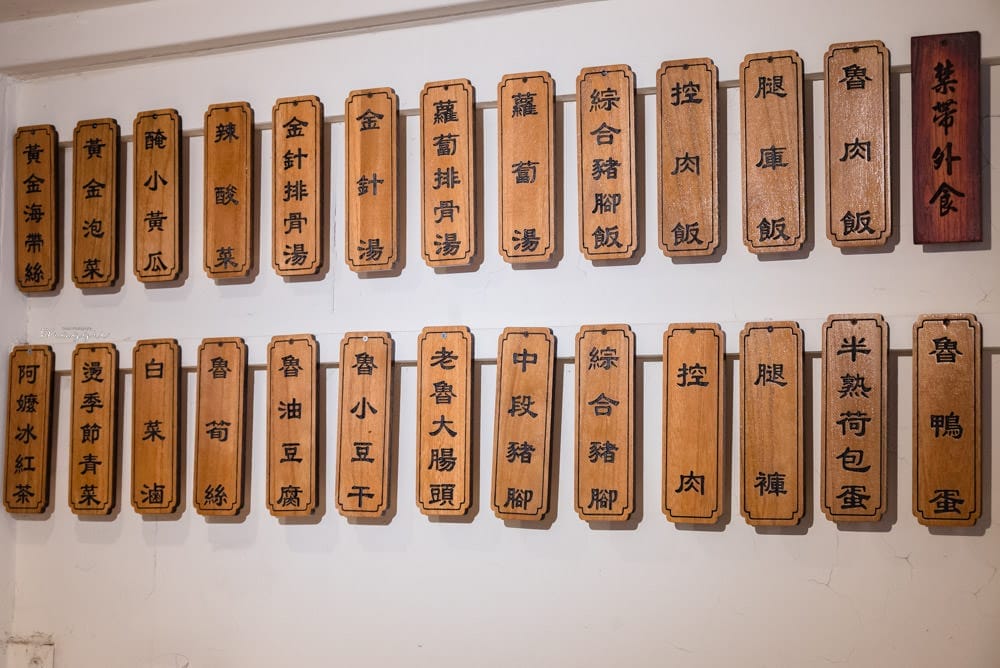 禁帶外食
魯肉飯
腿庫飯
控肉飯
綜合豬腳飯
蘿蔔湯
蘿蔔排骨湯
金針湯
金針排骨湯
辣酸菜
醃小黃瓜
黃金泡菜
黃金海帶絲
魯鴨蛋
半熟荷包蛋
腿褲
控肉
綜合豬腳
中段豬腳
老魯大腸頭
魯小豆干
魯油豆腐
魯筍絲
白菜滷
燙季節青菜
阿嬤冰紅茶